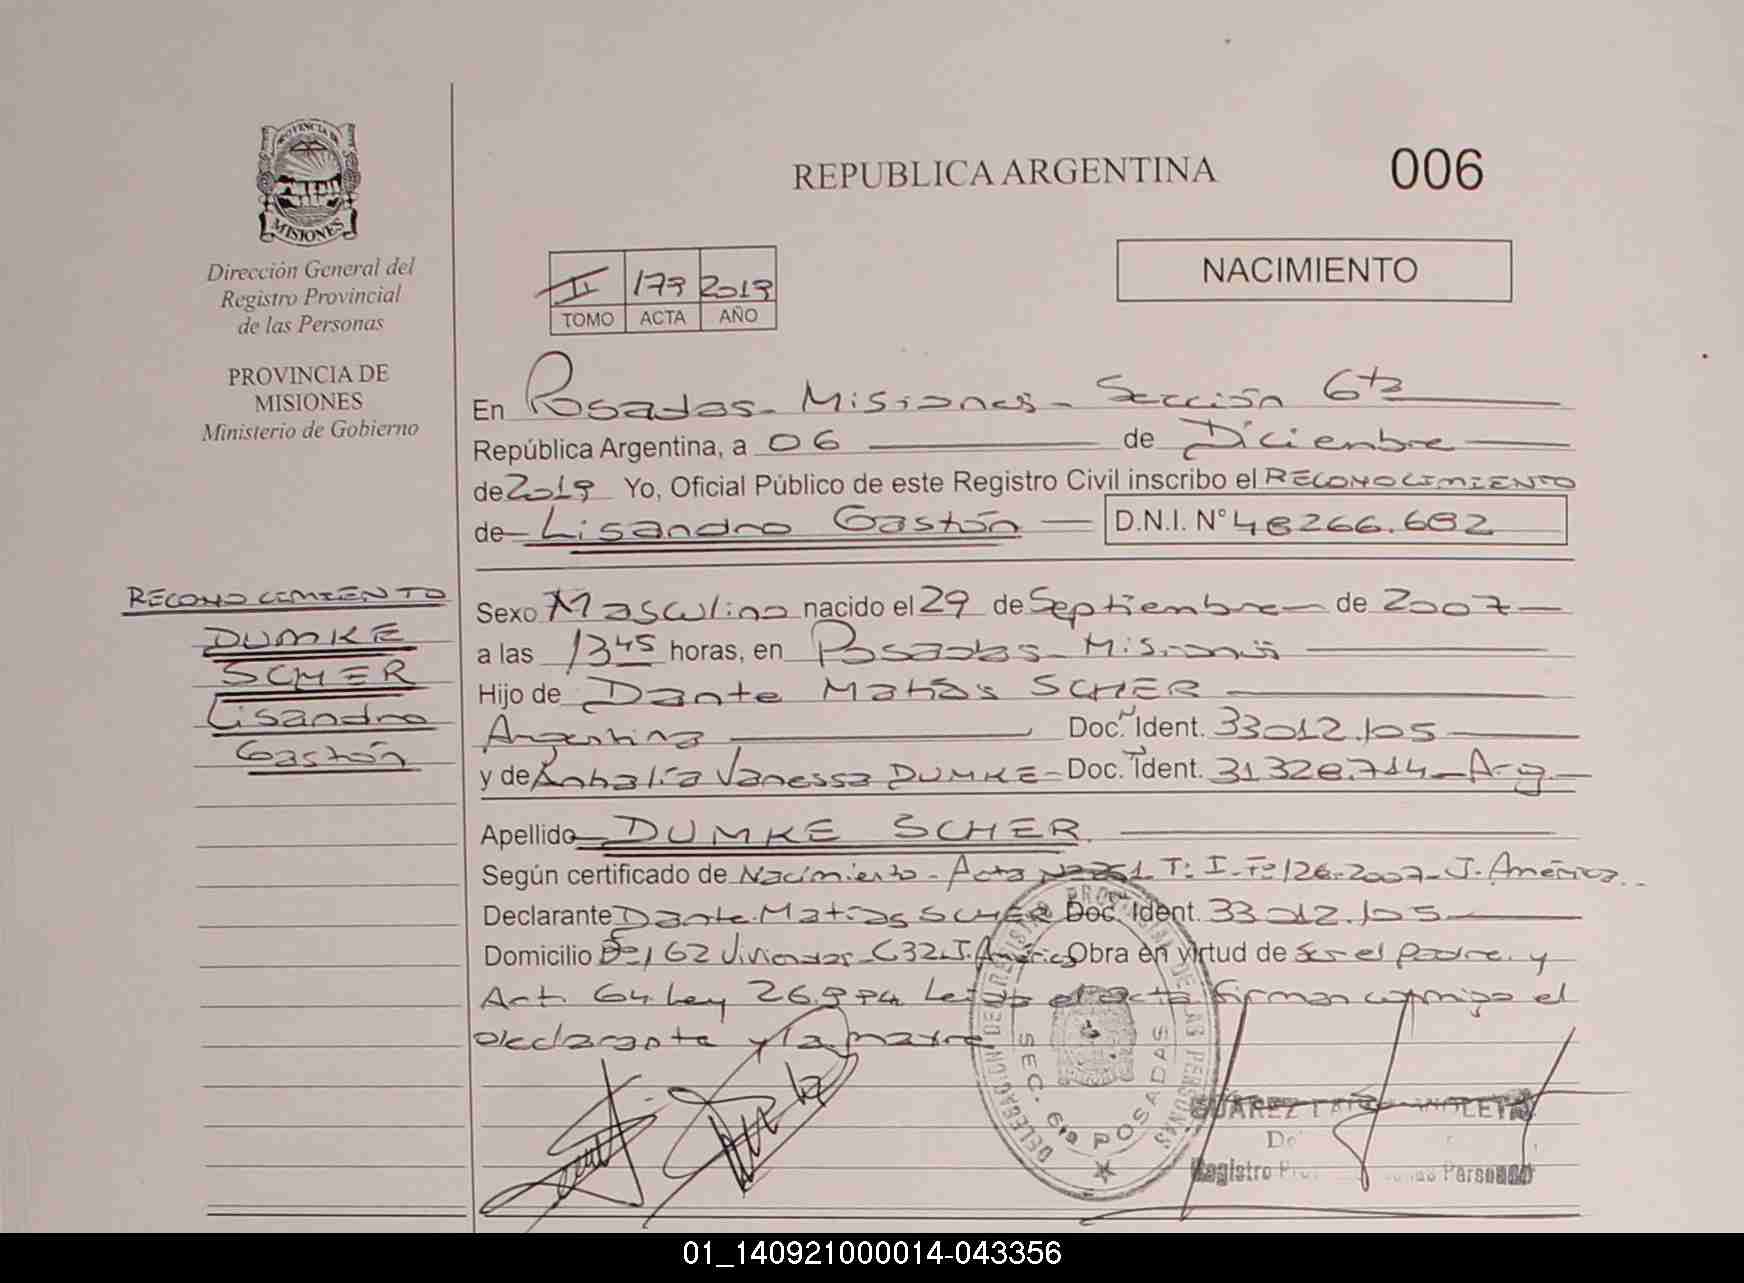 REPUBLICA ARGENTINA
006
PROVINCIA DE
MISIONES
Dirección General del
Registro Provincial
de las Personas
PROVINCIA DE
MISIONES
Ministerio de Gobierno
II 173 2019
TOMO ACTA AÑO
NACIMIENTO
En Posadas - Misiones - Sección 6ta
República Argentina, a 06 de Diciembre
de 2019 Yo, Oficial Público de este Registro Civil inscribo el RECONOCIMIENTO
de Lisandro Gastón D.N.I. N° 48266.682
RECONOCIMIENTO
DUMKE
SCHER
Lisandro
Gastón
Sexo Masculino nacido el 29 de Septiembre de 2007
a las 13 45 horas, en Posadas - Misiones
Hijo de Dante Matías SCHER
Argentina Doc. Ident. 33012.105
y de Vanessa DUMKE - Doc. Ident. 31328.714 - Arg.
Apellido DUMKE SCHER
Según certificado de Nacimiento - Acta T: I - F° 126 - 2007 - J. América
Declarante Dante Matías SCHER Doc. Ident. 33012.105
Domicilio 162 Viviendas - C32 - J. América Obra en virtud de ser el padre y
Art. 64 Ley 26.994 Leída el acta firman conmigo el
declarante y la madre
DELEGACION DEL REGISTRO PROVINCIAL DE LAS PERSONAS
SEC. 6ta POSADAS
SUAREZ
Registro Personas
01_140921000014-043356